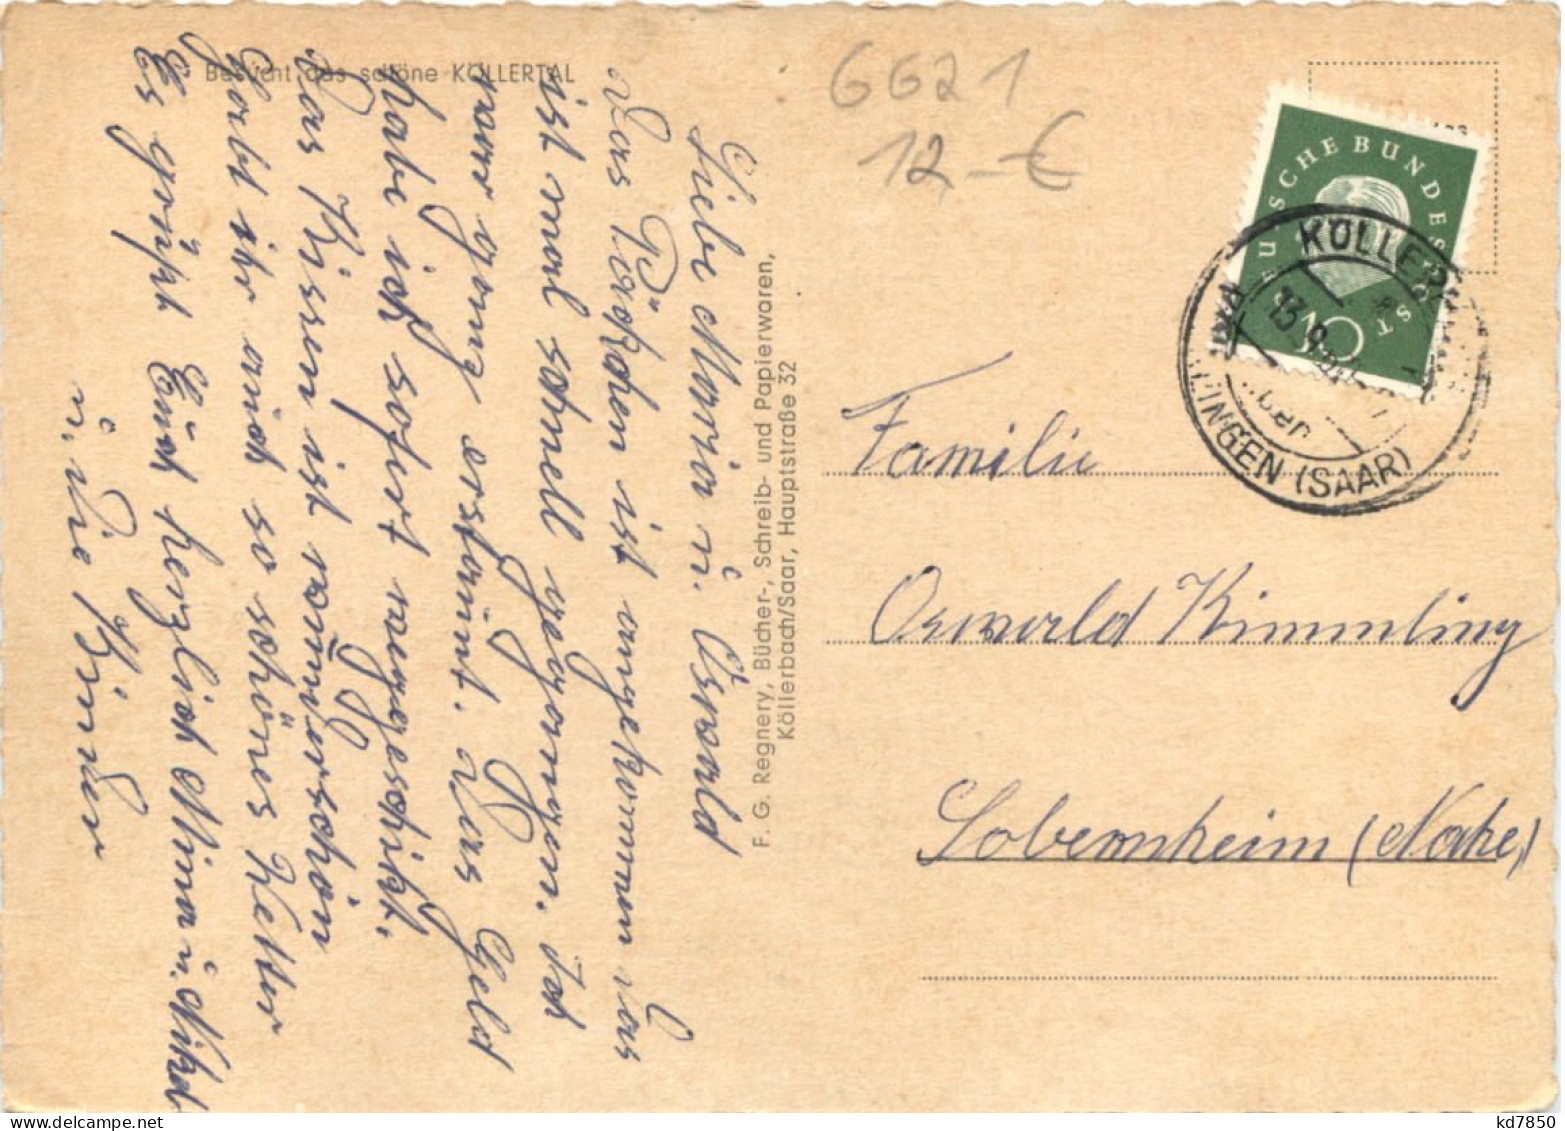 Besucht das schöne KÖLLERTAL
Liebe Maria u. Oswald
Das Päckchen ist angekommen das
ist mal schnell gegangen. Ich
war ganz erstaunt. Das Geld
habe ich sofort weggeschickt.
Das Kissen ist wunderschön
habt ihr auch so schönes Wetter
Es grüßt Euch herzlich Mina u.
u. die Kinder
F. G. Regnery, Bücher-, Schreib- und Papierwaren,
Köllerbach/Saar, Hauptstraße 32
6621
12,-€
DEUTSCHE BUNDESPOST
KÖLLERBACH
13.9.
(SAAR)
Familie
Oswald Kimmling
Sobernheim (Nahe)
kd7850